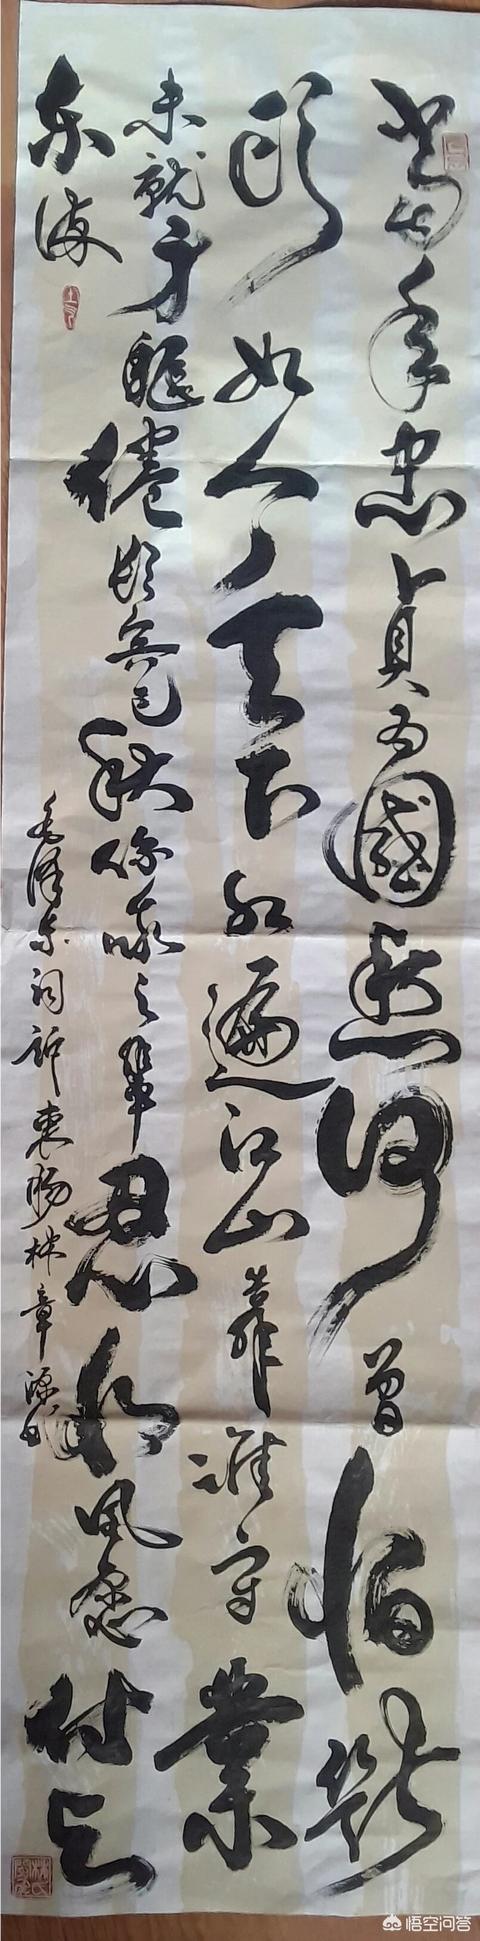 当年忠貞为國愁何曾怕断
头如今天下红遍江山靠谁守業
未就身躯倦鬓已秋你我之辈忍将夙愿付与
东流
毛泽东词诉衷肠林章源书
悟空问答